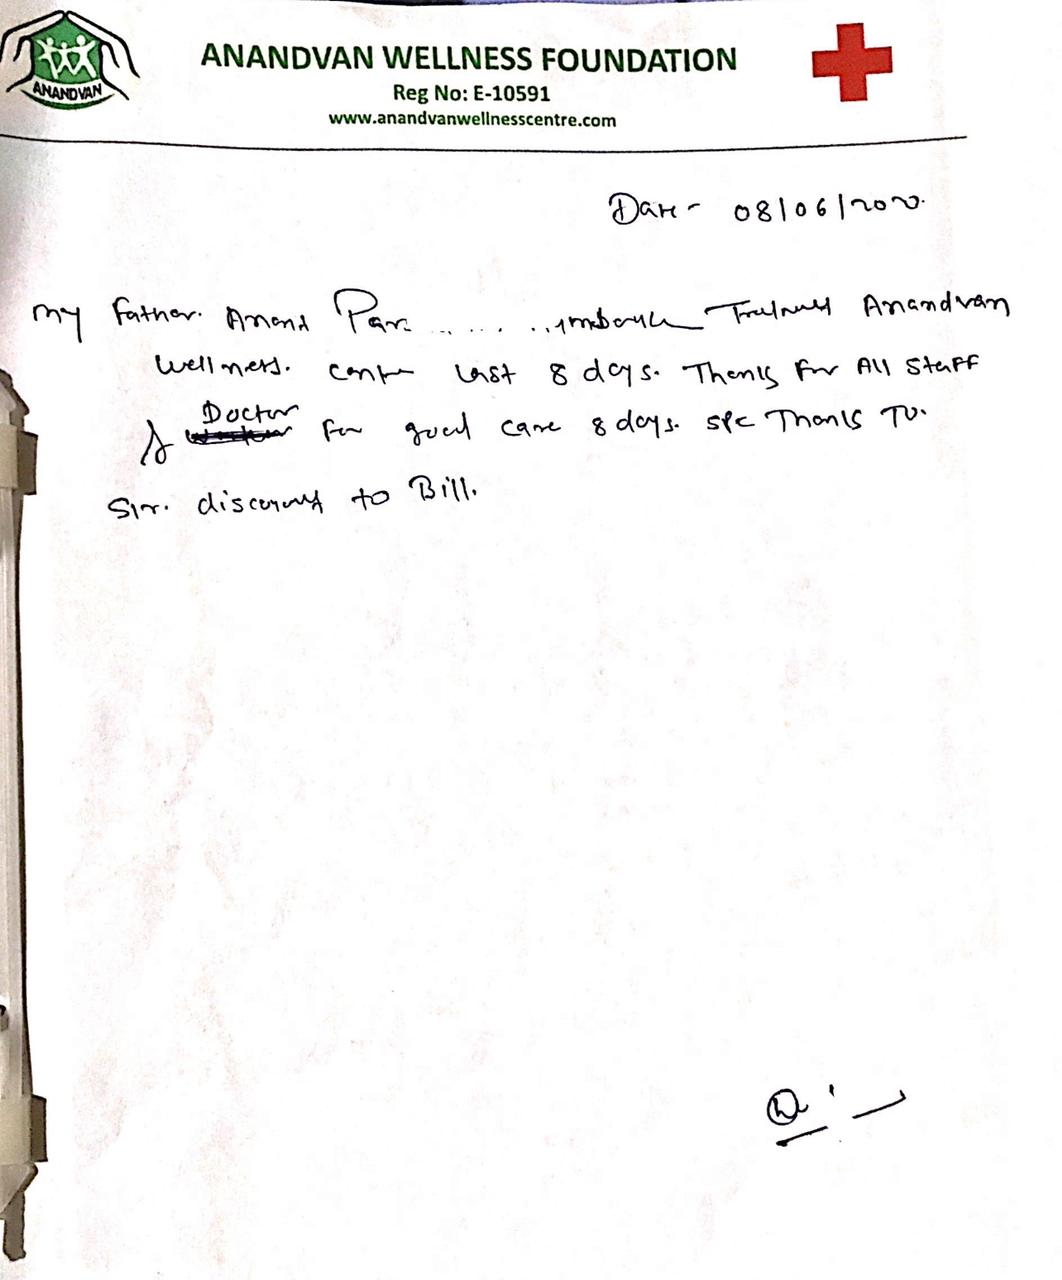 ANANDVAN
ANANDVAN WELLNESS FOUNDATION
Reg No: E-10591
www.anandvanwellnesscentre.com
Date - 08/06/2020.
My Father. Anand Anandvan
Wellness. last 8 days. Thanks For All Staff
& Doctor For good care 8 days. spc Thanks To.
Sir. discount to Bill.